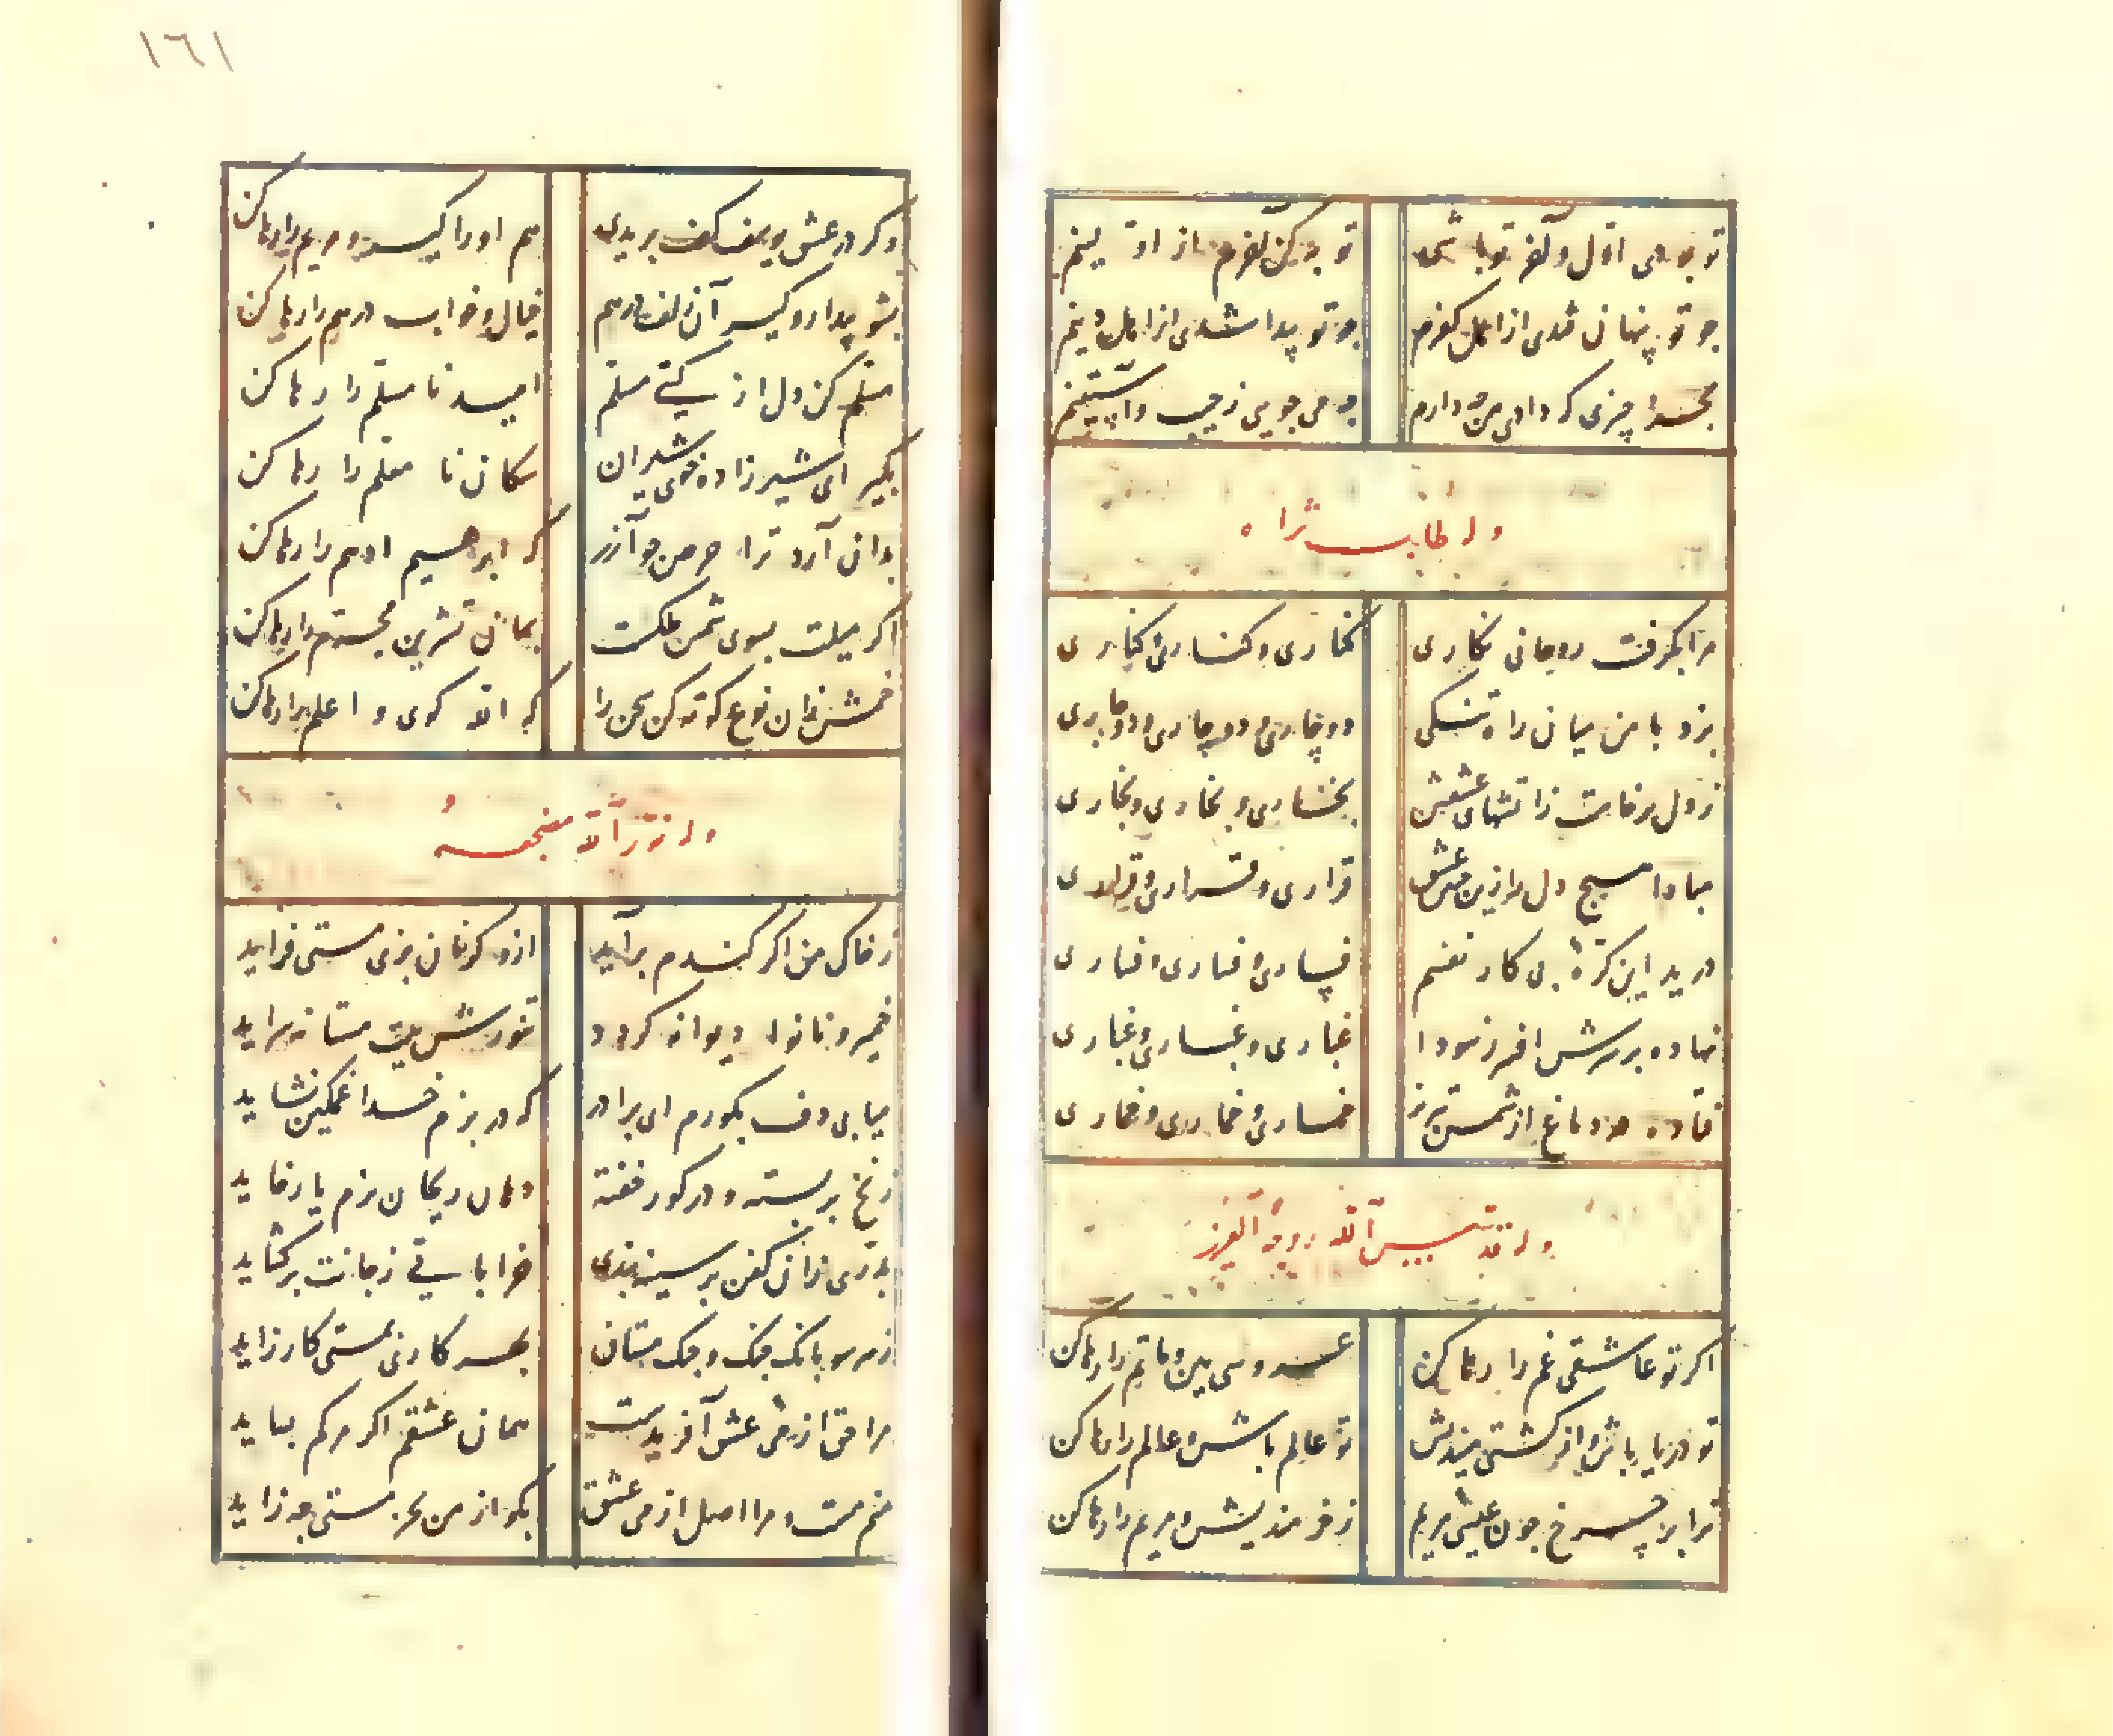 تو بودی اوّل و آخر تو باشی تو به کن آخرم از اوّلینم
جو تو پنهان شدی از اهل کفرم جو تو پیدا شدی از اهل دینم
بجز چیزی که دادی من چه دارم چه می جویی ز جیب و آستینم
وله طاب ثراه
مرا بگرفت روحانی نگاری کناری و کناری و کناری
بزد با من میان راه تنکی دوچاری و دوچاری و دوچاری
ز دل برخاست زاتشهای عشقش بخاری و بخاری و بخاری
مبادا هیچ دل را زین عشق قراری و قراری و قراری
درید این کرّه بی کار نفسم فساری و فساری و فساری
نهاده بر سرش افسر ز سودا غباری و غباری و غباری
فتاده در دماغ از شمس تبریز خماری و خماری و خماری
وله قدس الله روحه العزیز
اکر تو عاشقی غم را رها کن عروسی بین و ماتم را رها کن
تو دریا باش و از کشتی میندیش تو عالم باش و عالم را رها کن
ترا بر چرخ جون عیسی مریم ز خر مندیش و مریم را رها کن
١٦١
وکر در عشق یوسف کف بریدی هم او را کیر و مرهم را رها کن
بشو بیدار و کیر آن زلف درهم خیال و خواب درهم را رها کن
مسلم کن دل از کیتی مسلم امید نا مسلم را رها کن
بکیر ای شیرزاده خوی شیران سکان نا معلم را رها کن
بدان آرد ترا حرص جو آزر که ابرهیم ادهم را رها کن
اکر میلت بسوی شمس ملکست
خمش زان نوع کوته کن سخن را که الله کوی و اعلم را رها کن
وله نوّر الله مضجعه
ز خاک من اکر کندم برآید ازو کر نان بزی مستی فزاید
خمیر و نانوا دیوانه کردد تنورش بیت مستانه سراید
میا بی دف بکورم ای برادر که در بزم خدا غمکین نشاید
زنخ بربسته و در کور خفته دهان
بدرّی زان کفن بر سینه بندی خراباتی ز جانت برکشاید
ز هر سو بانک جنک و جنک مستان بهر کاری بمستی کار زاید
مرا حق از می عشق آفریدست همان عشقم اکر مرکم بساید
منم مست و مرا اصل از می عشق بکو از من بجز مستی جه زاید